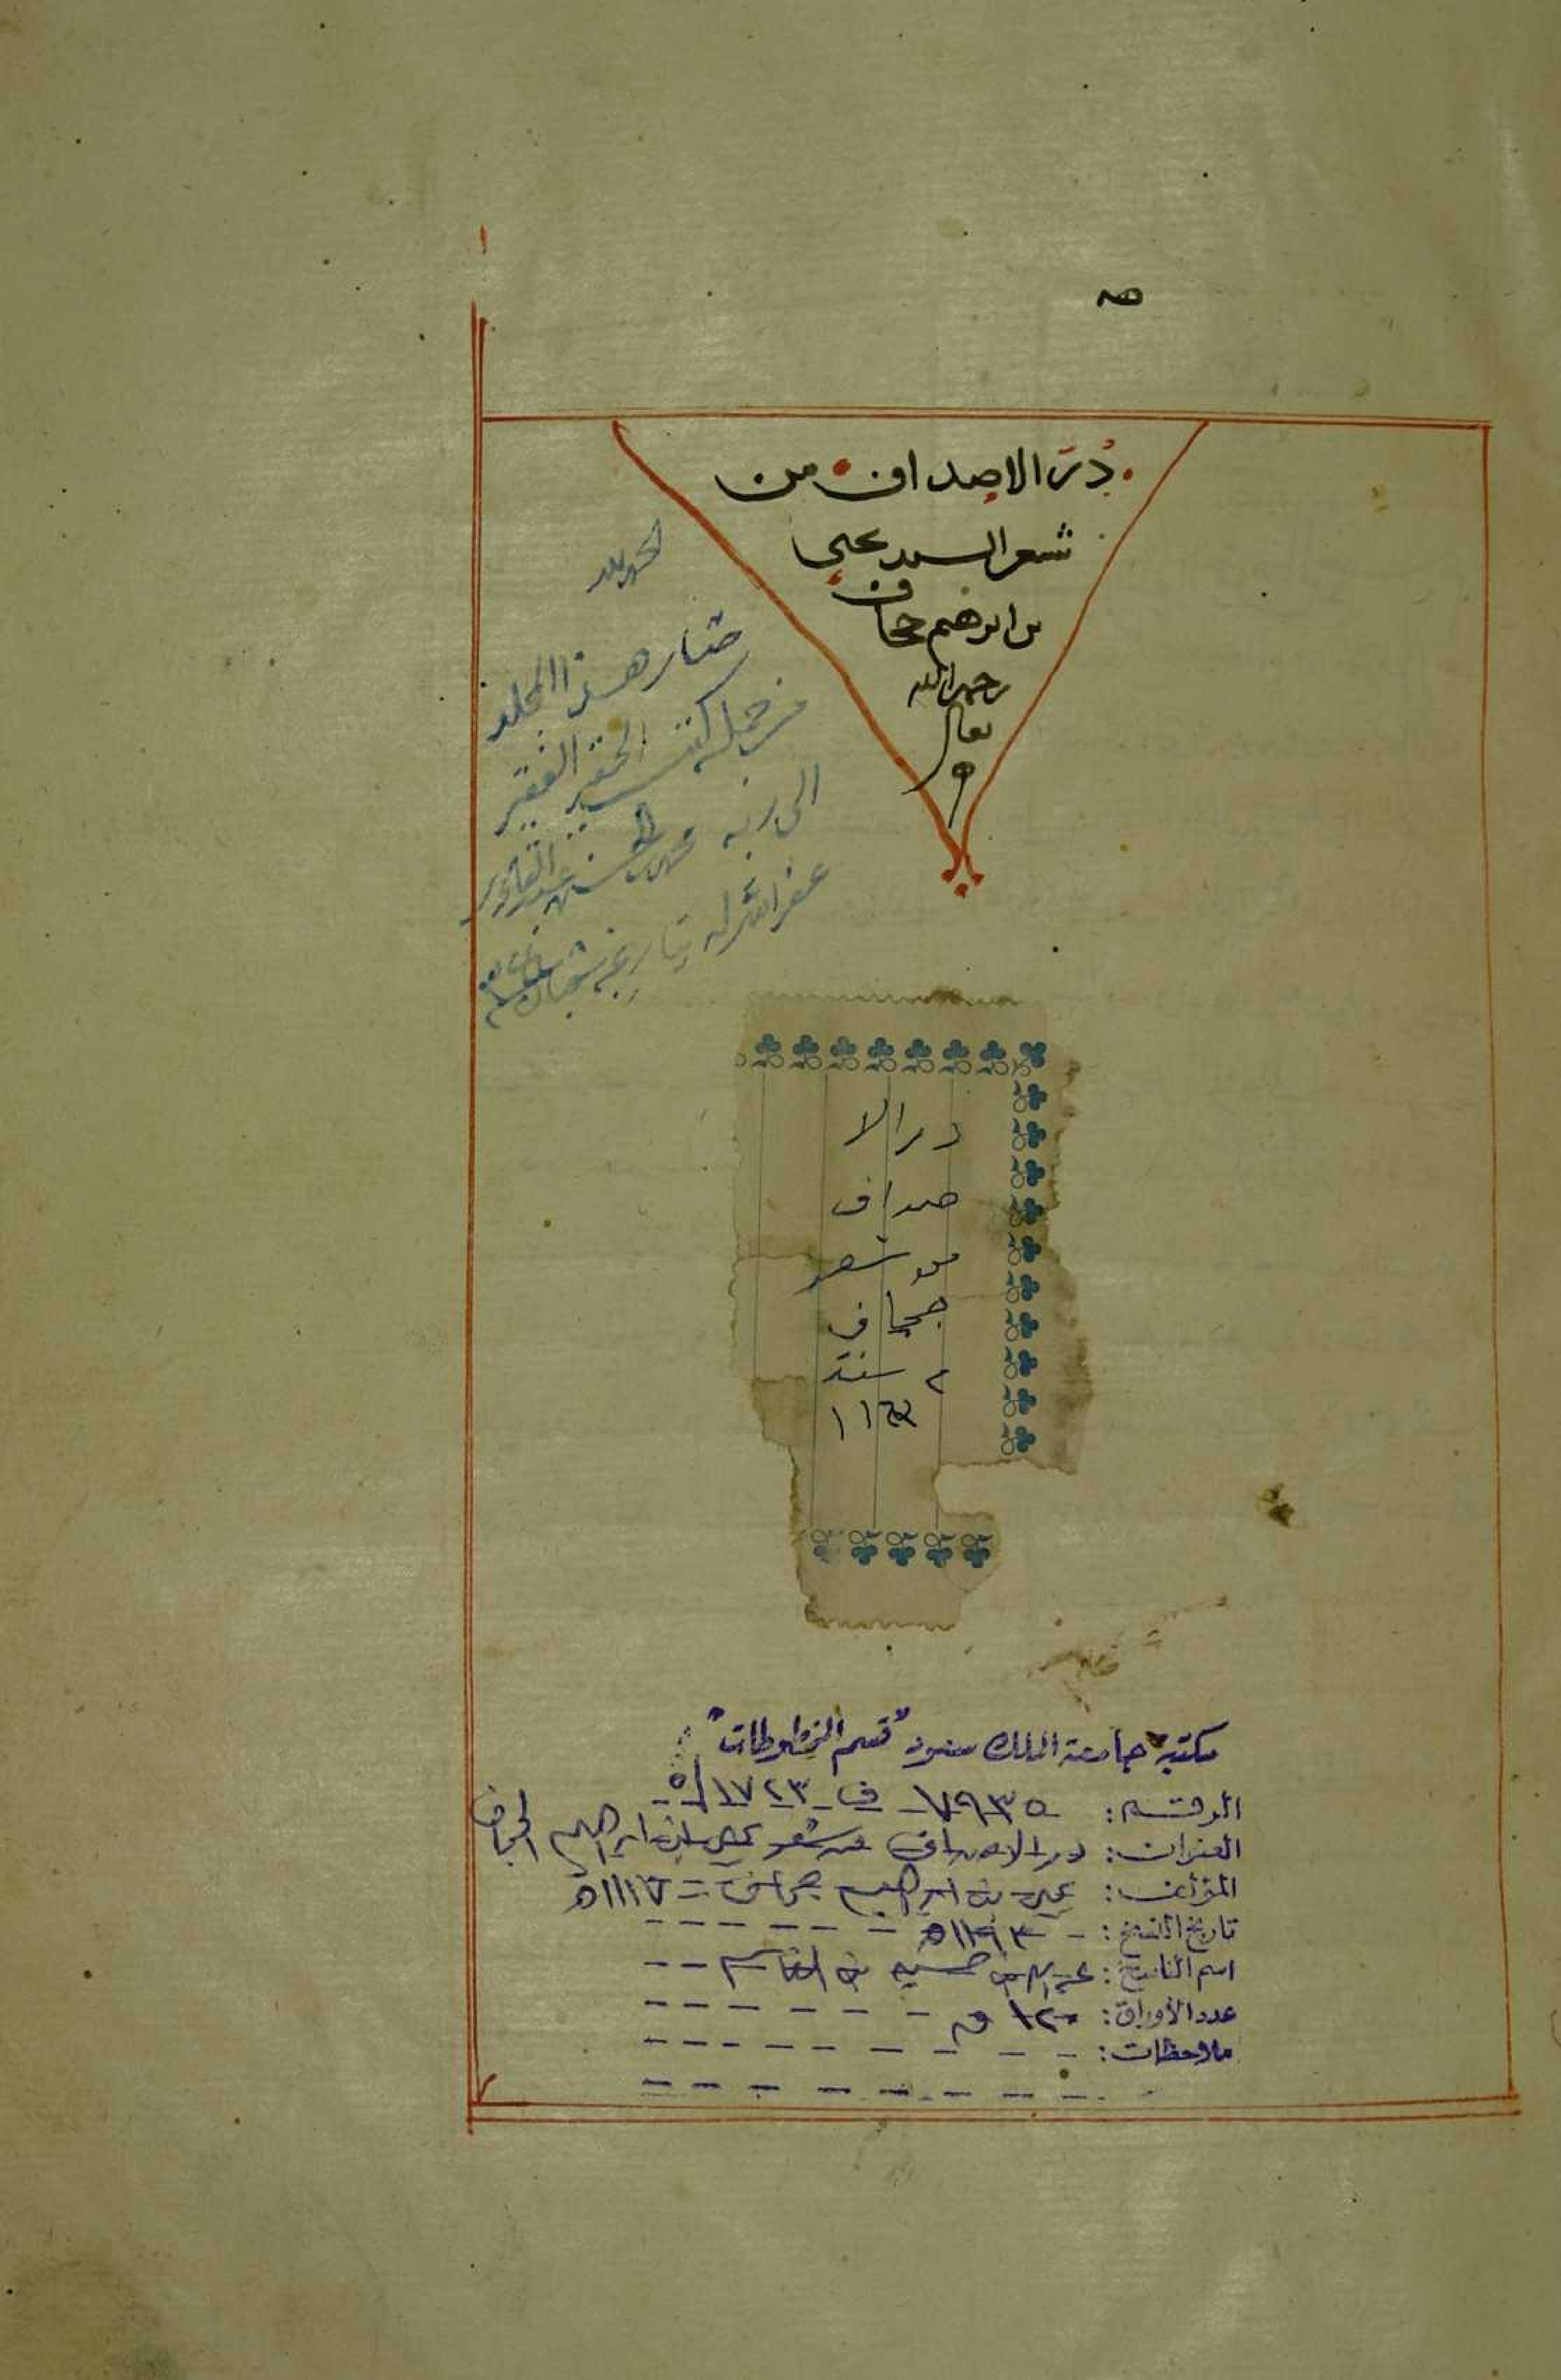 صه
دُرّ الاصداف من
شعر السيد يحيى
بن ابرهيم جحاف
رحمه الله
تعالى
الحمد لله
صار هذا المجلد
من جملة كتب الحقير الفقير
الى ربه محمد بن عبد القادر
غفر الله له بتاريخه شعبان
درر الا
صداف
من شعر
جحاف
٢ سنة
مكتبة جامعة الملك سعود "قسم المخطوطات"
الرقم: ٧٩٣٥ ف ١٧٢٣/٥
العنوان: درر الاصداف من شعر يحيى بن ابراهيم الجحاف
المؤلف: يحيى بن ابراهيم جحاف - ١١١٧هـ
تاريخ النسخ: ١٢٩٣هـ
اسم الناسخ: حسين بن القاسم
عدد الأوراق: ١٢٠ ق
ملاحظات: